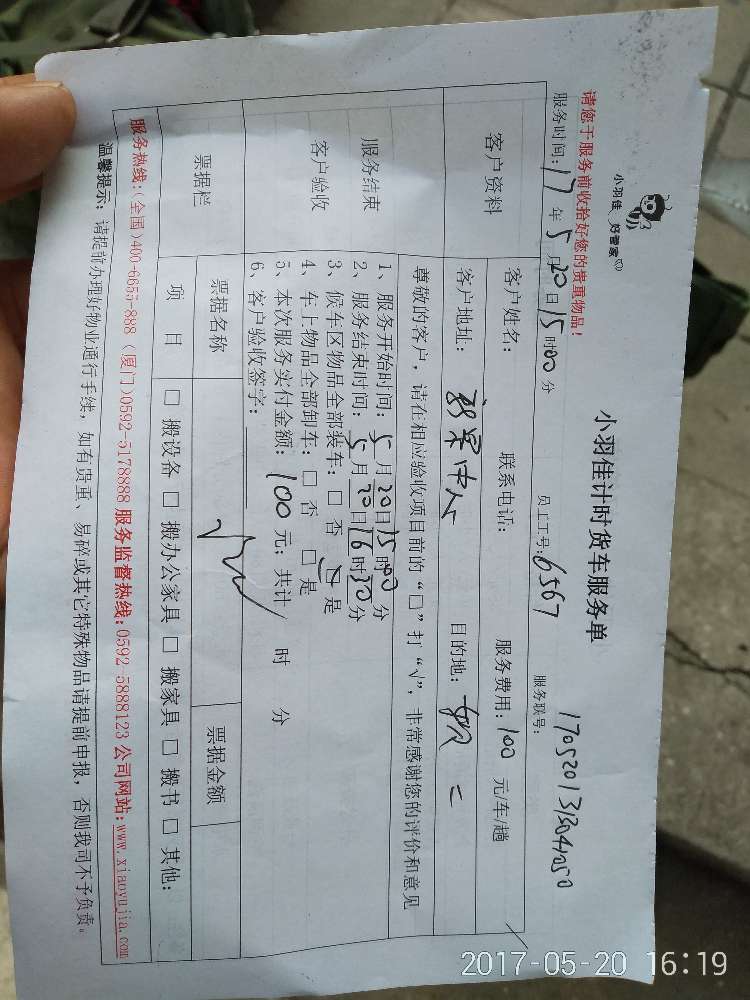 小羽佳 好管家
小羽佳计时货车服务单
请您于服务前收拾好您的贵重物品!
服务时间:17年5月20日15时00分 员工工号:6567 服务联号:
客户资料 客户姓名: 联系电话: 服务费用:100元/车/趟
客户地址: 目的地:
尊敬的客户,请在相应验收项目前的“□”打“√”,非常感谢您的评价和意见
服务结束
客户验收
1、服务开始时间:5月20日15时00分
2、服务结束时间:5月20日16时30分
3、候车区物品全部装车:□否 □是
4、车上物品全部卸车:□否 □是
5、本次服务实付金额:100元;共计/时 分
6、客户验收签字:
票据栏 票据名称 票据金额
项目 □搬设备 □搬办公家具 □搬家具 □搬书 □其他:
服务热线:(全国)400-6655-888 (厦门)0592-5178888 服务监督热线:0592-5888123 公司网站:www.xiaoyujia.com
温馨提示:请提前办理好物业通行手续,如有贵重、易碎或其它特殊物品请提前申报,否则我司不予负责。
2017-05-20 16:19